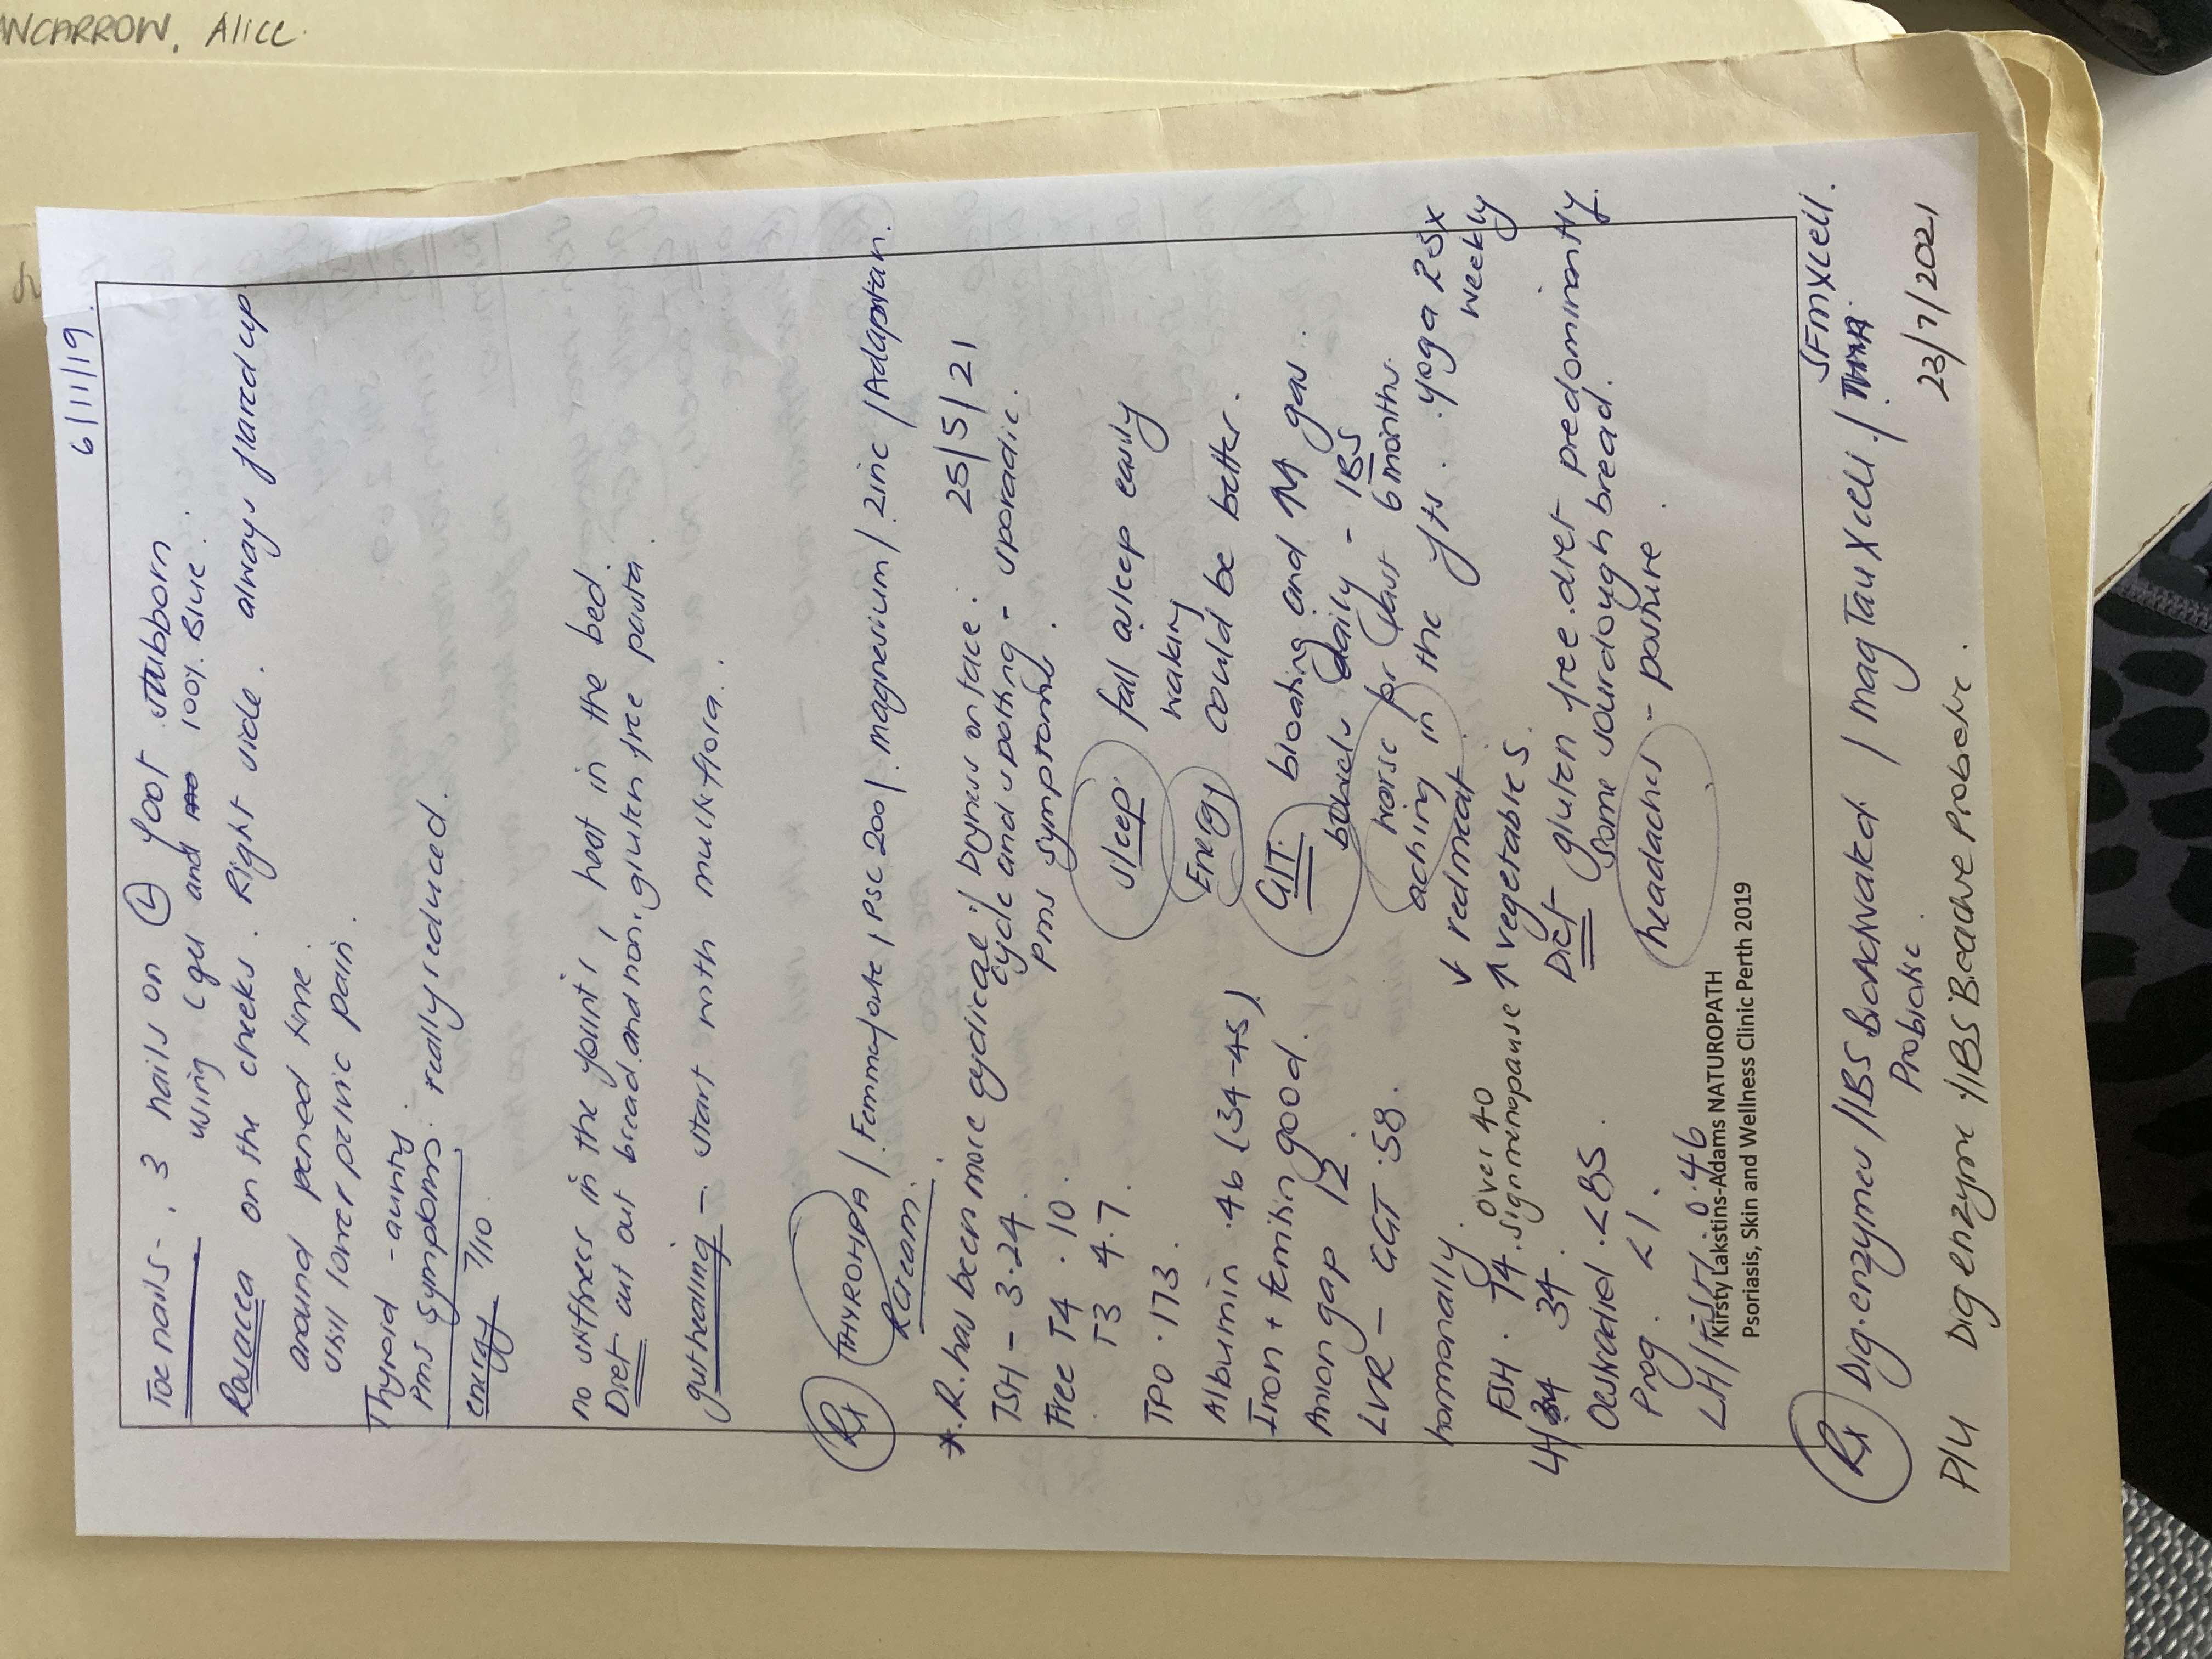 ANCARROW, Alice.
6/11/19.
Toe nails - 3 nails on L foot stubborn
using C gel and 100% Blue.
Rosacea on the cheeks. Right side. always flared up
around period time.
still lower pelvic pain.
Thyroid - aunty
Pms symptoms: really reduced.
energy 7/10
no stiffness in the joints, heat in the bed.
Diet cut out bread and non gluten free pasta
gut healing - start with multiflora.
Rx THYROHPA / Femmeforte / PSC 200 / magnesium / zinc / Adaptan.
R cream.
25/5/21
* R. has been more cyclical / Dryness on face.
TSH - 3.24 cycle and spotting - sporadic.
Free T4 . 10. pms symptoms.
T3 4.7.
sleep fall asleep easily
TPO . 173. waking
Energy could be better.
Albumin . 46 (34-45)
Iron + ferritin good. GIT. bloating and ↑↑ gas.
Anion gap 12. bowels daily - IBS
LVR - GGT . 58. worse for past 6 months.
aching in the jts. yoga 2-3x weekly
hormonally. ↓ red meat.
over 40
FSH . 74. sign menopause ↑ vegetables
LH 34 34. Diet gluten free diet predominantly.
Oestradiol . <85. Some sourdough bread.
Prog. <1. headaches - posture.
LH/FSH. 0.46
Kirsty Lakstins-Adams NATUROPATH
Psoriasis, Skin and Wellness Clinic Perth 2019
SFMXcell.
Rx Dig. enzymes / IBS Bioadvaked / mag Tau Xcell /
Probiotic.
23/7/2021
P/U Dig enzyme / IBS Bioactive Probiotic.